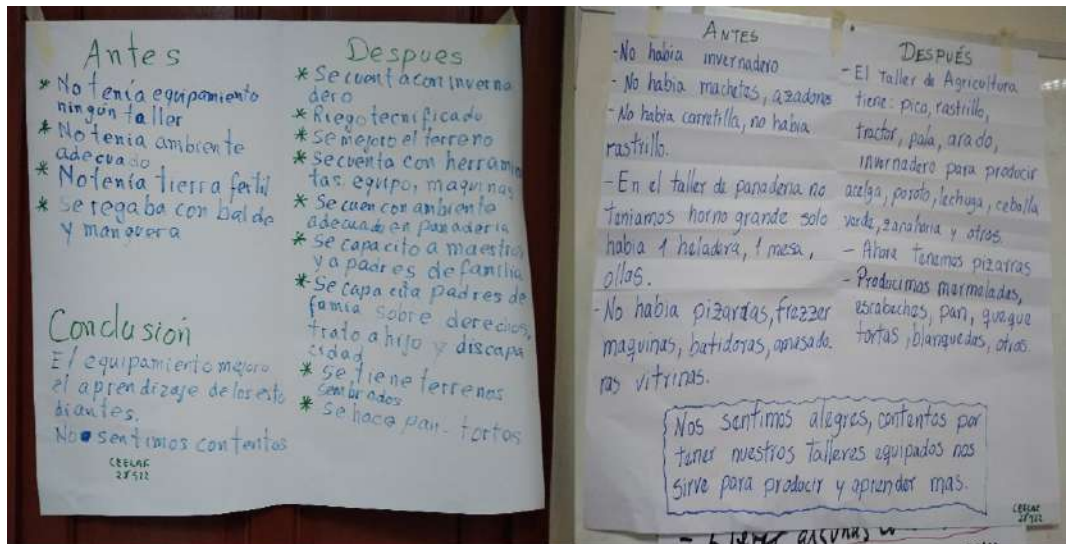 Antes
* No tenía equipamiento
ningún taller
* No tenia ambiente
adecuado
* No tenía tierra fertil
* Se regaba con balde
y manguera
Conclusión
El equipamiento mejoro
el aprendizaje de los estu
diantes.
Nos sentimos contentos
CEELAF
Despues
* Se cuenta con inverna
dero
* Riego tecnificado
* Se mejoro el terreno
* Se cuenta con herramien
tas. equipo, maquinas
* Se cuen con ambiente
adecuado en panaderia
* Se capacito a maestros
y a padres de familia
* Se capacita padres de
famia sobre derechos,
trato a hijo y discapa
cidad
* Se tiene terrenos
sembrados
* Se hace pan - tortas
ANTES
- No habia invernadero
- No habia machetes, azadones
- No habia carretilla, no habia
rastrillo.
- En el taller de panaderia no
teniamos horno grande solo
habia 1 heladera, 1 mesa,
ollas.
- No habia pizarras, frezzer
maquinas, batidoras, amasado
ras vitrinas.
DESPUÉS
- El Taller de Agricultura
tiene: pico, rastrillo,
tractor, pala, arado,
invernadero para producir
acelga, poroto, lechuga, cebolla
verde, zanahoria y otros.
- Ahora tenemos pizarras
- Producimos mermeladas,
escabeches, pan, queque
tortas, blanquedas, otros.
Nos sentimos alegres, contentos por
tener nuestros talleres equipados nos
sirve para producir y aprender mas.